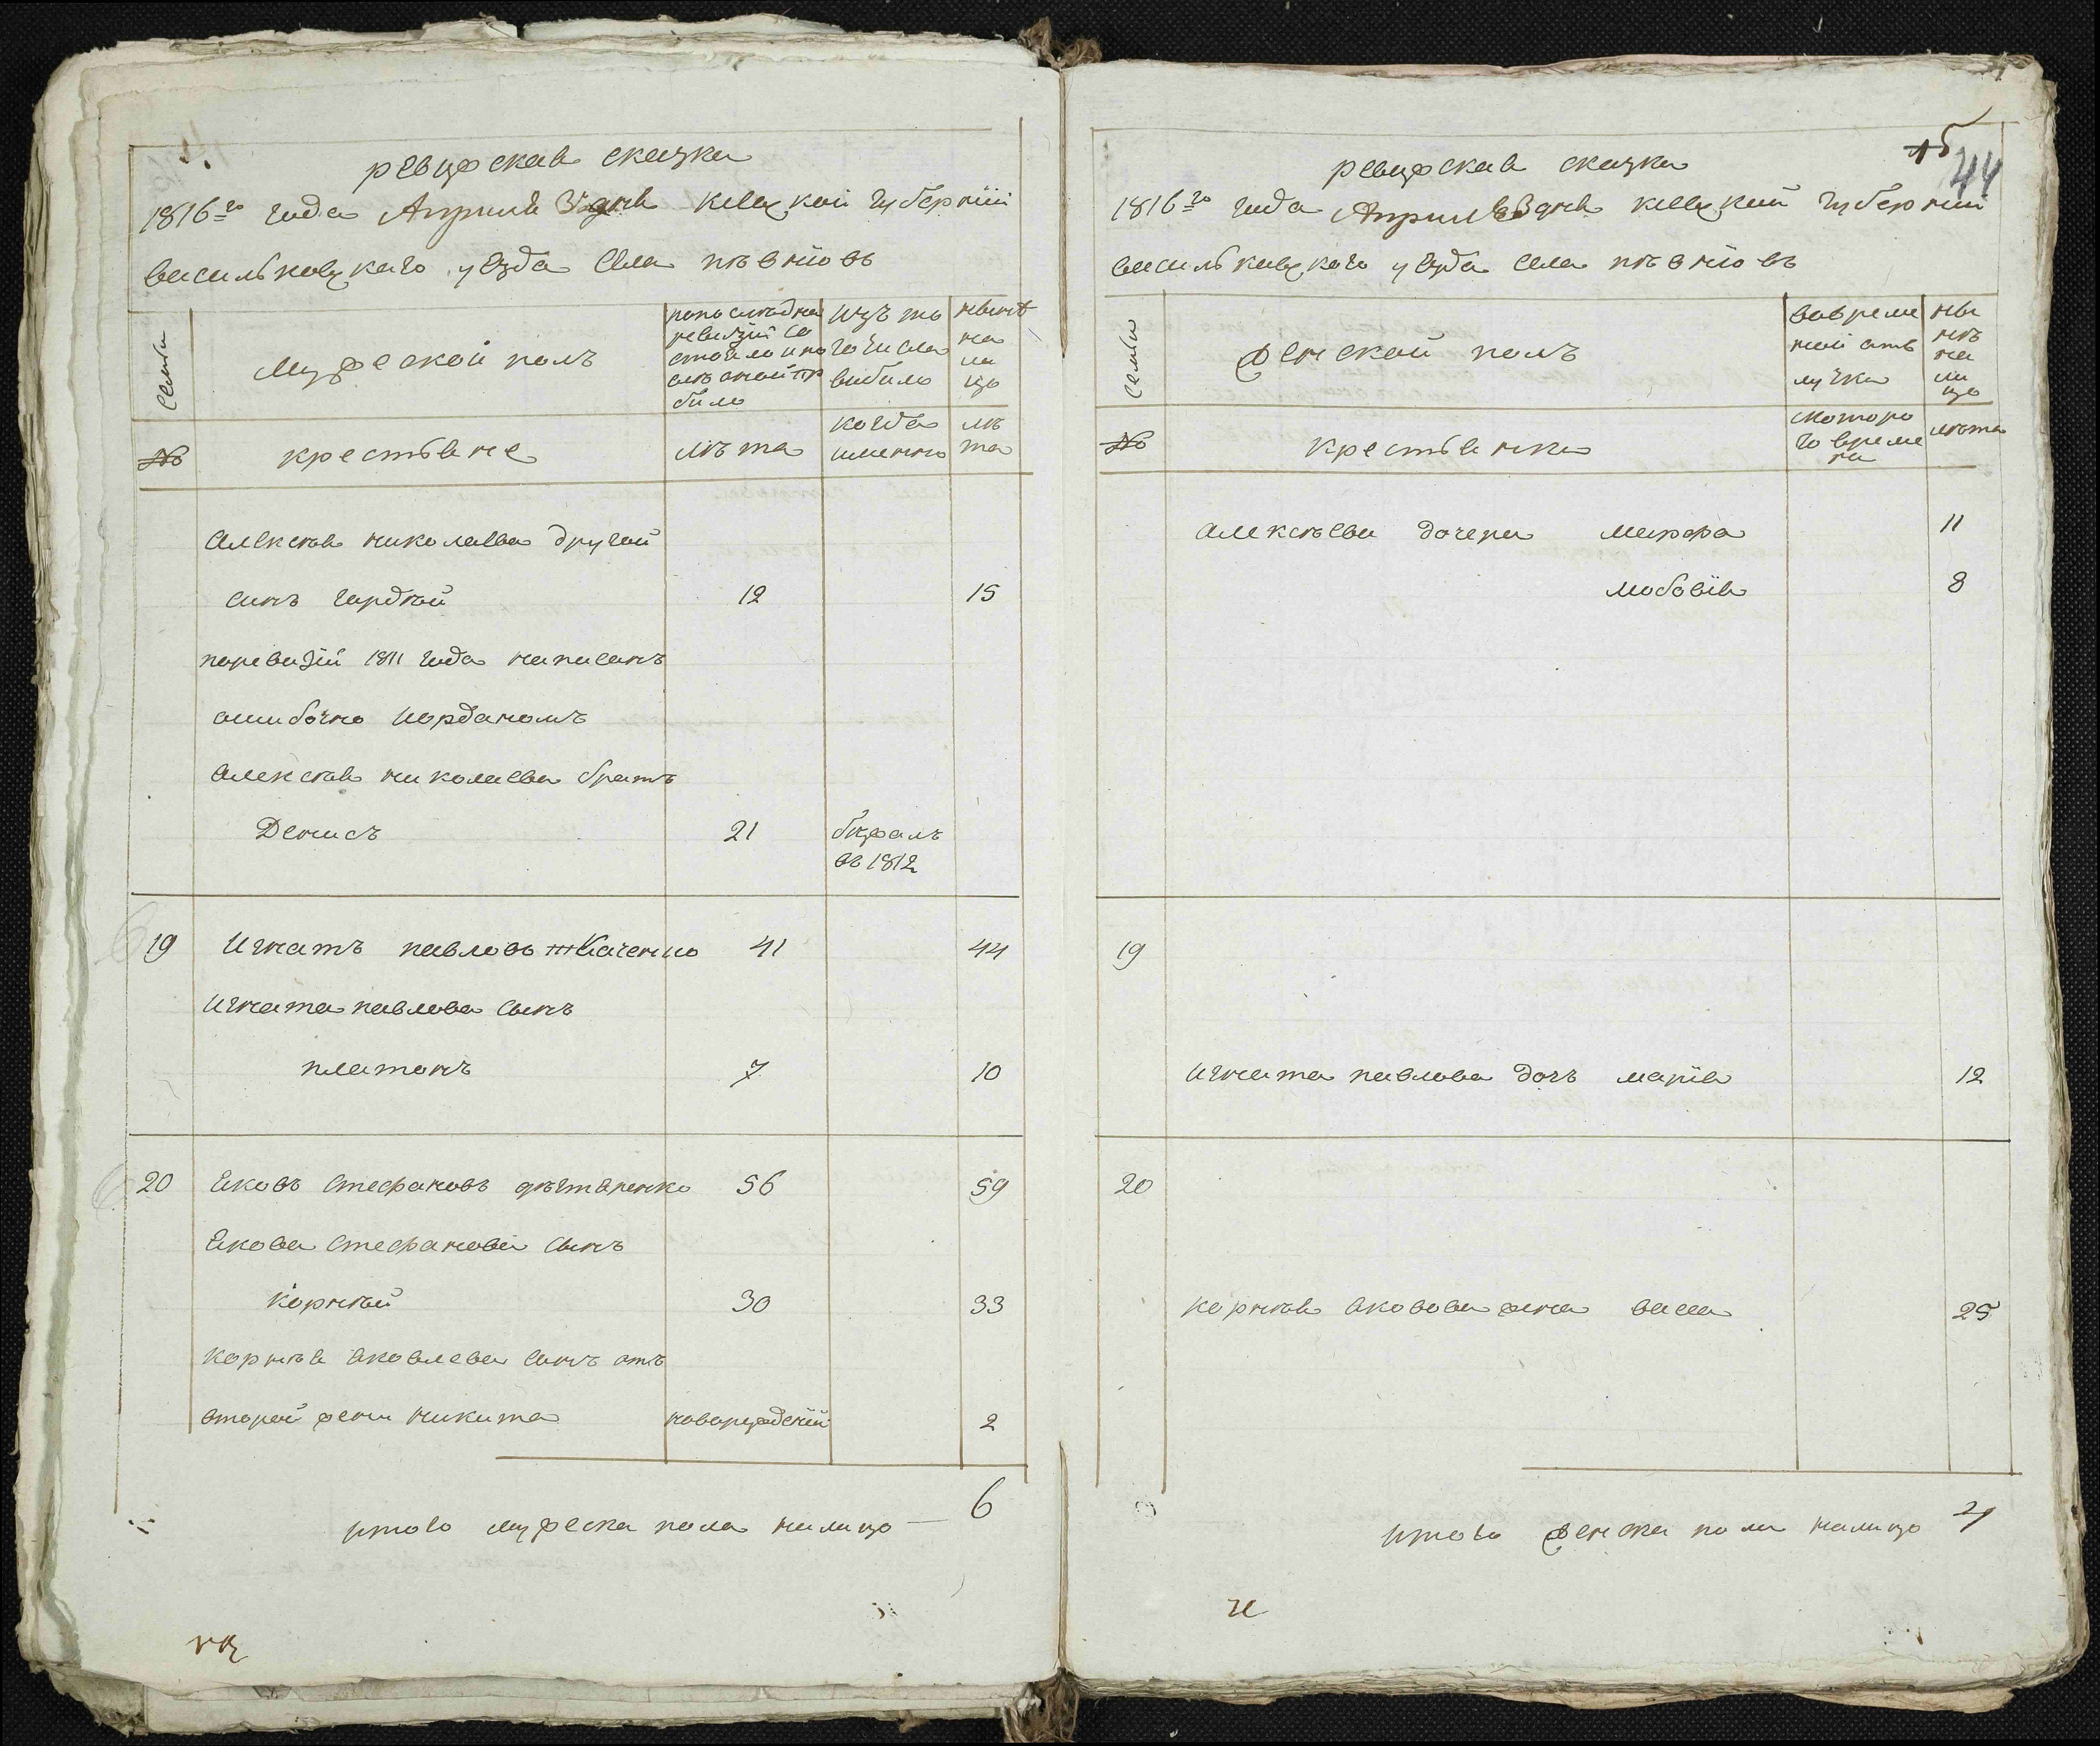 ревижская сказка
1816го года Апреля 3 дня киевской губернии
васильковского уезда села
Семьи
мужеской полъ
попоследней ревизии состояло и после оной прибыло
изъ того числа выбыло
ныне налицо
№
крестьяне
лѣта
когда именно
лѣта
алексѣя николаева другой
сынъ гордѣй 12 15
поревизіи 1811 года написанъ
ошибочно иорданомъ
алексѣя николаева братъ
Денисъ 21 бѣжалъ
въ 1812
19 игнатъ павловъ ткаченко 41 44
игната павлова сынъ
платонъ 7 10
20 яковъ стефановъ 56 59
якова стефанова сынъ
корнѣй 30 33
корнѣя яковлева сынъ отъ
второй жены никита новорожденій 2
итого мужеска пола налицо — 6
ревижская сказка
15
44
1816го года Апреля 3 дня киевской губернии
васильковского уезда села
Семьи
женской полъ
вовременной отлучке
ныне налицо
№
крестьянки
скоторого времени
лѣта
алексѣева дочери марфа 11
любовія 8
19
игната павлова дочь марія 12
20
корнѣя яковова жена васса 25
итого женска пола налицо 4